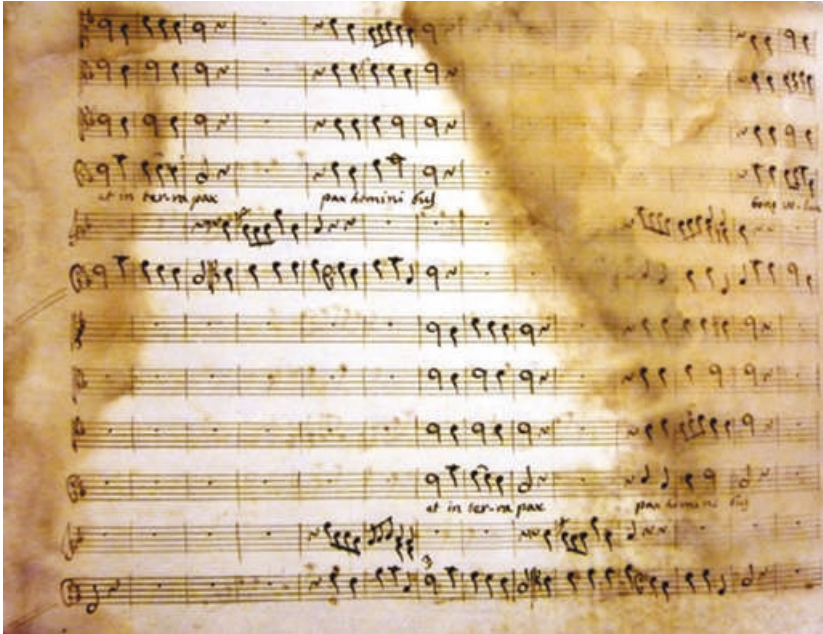 et in ter-ra pax pax homini bus bone vo-lun
et in ter-ra pax pax homini bus